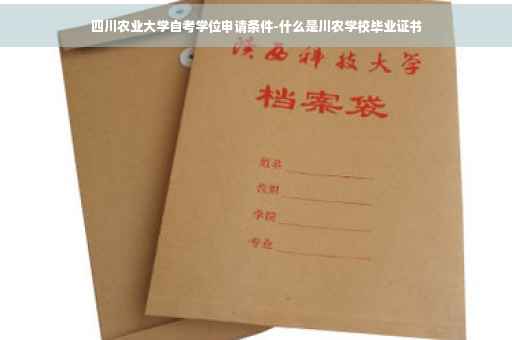 四川农业大学自考学位申请条件-什么是川农学校毕业证书
陕西科技大学
档案袋
姓名
学院
专业